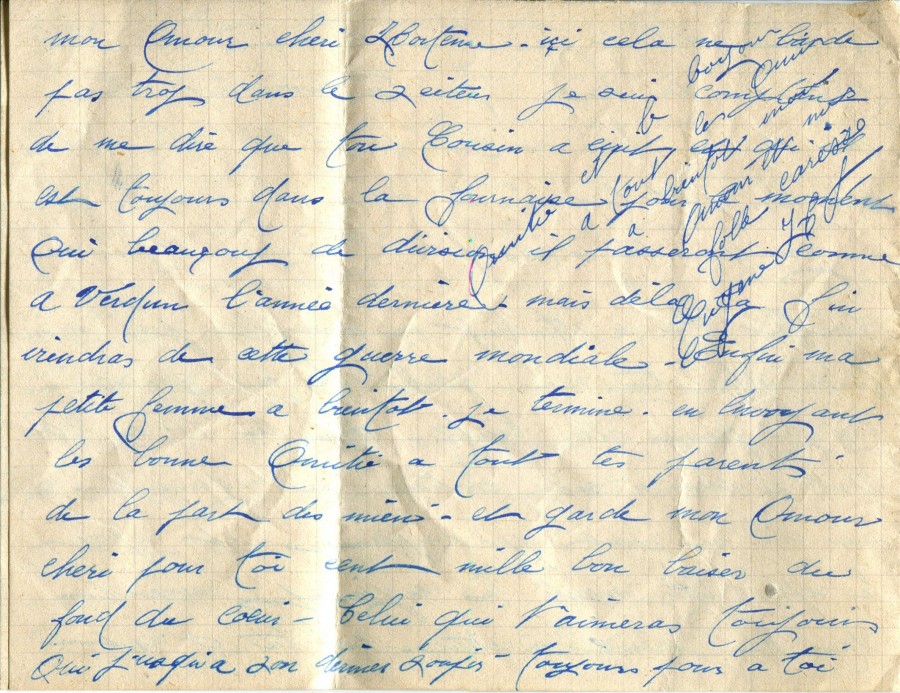 mon Amour cheri Hortense - içi cela ne barde
pas trop dans le secteur je suis
de me dire que ton Cousin a
est toujours dans la fournaise pour le moment
Qui beaucoup de division il passeront comme
a Verdun l'année dernière - mais de la la fin
viendras de cette guerre mondiale - Enfin ma
petite femme a bientot. je termine. en t'envoyant
les bonne Amitié a tout tes parents -
de la part des miens - et garde mon Amour
cheri pour toi cent mille bon baiser du
fond du coeur - Celui qui t'aimeras toujours
Qui jusqu'a son dernier soupir toujours pour a toi
Amitié et le bonjour
a tout les amis
a bientot
Amour mille
folle caresse